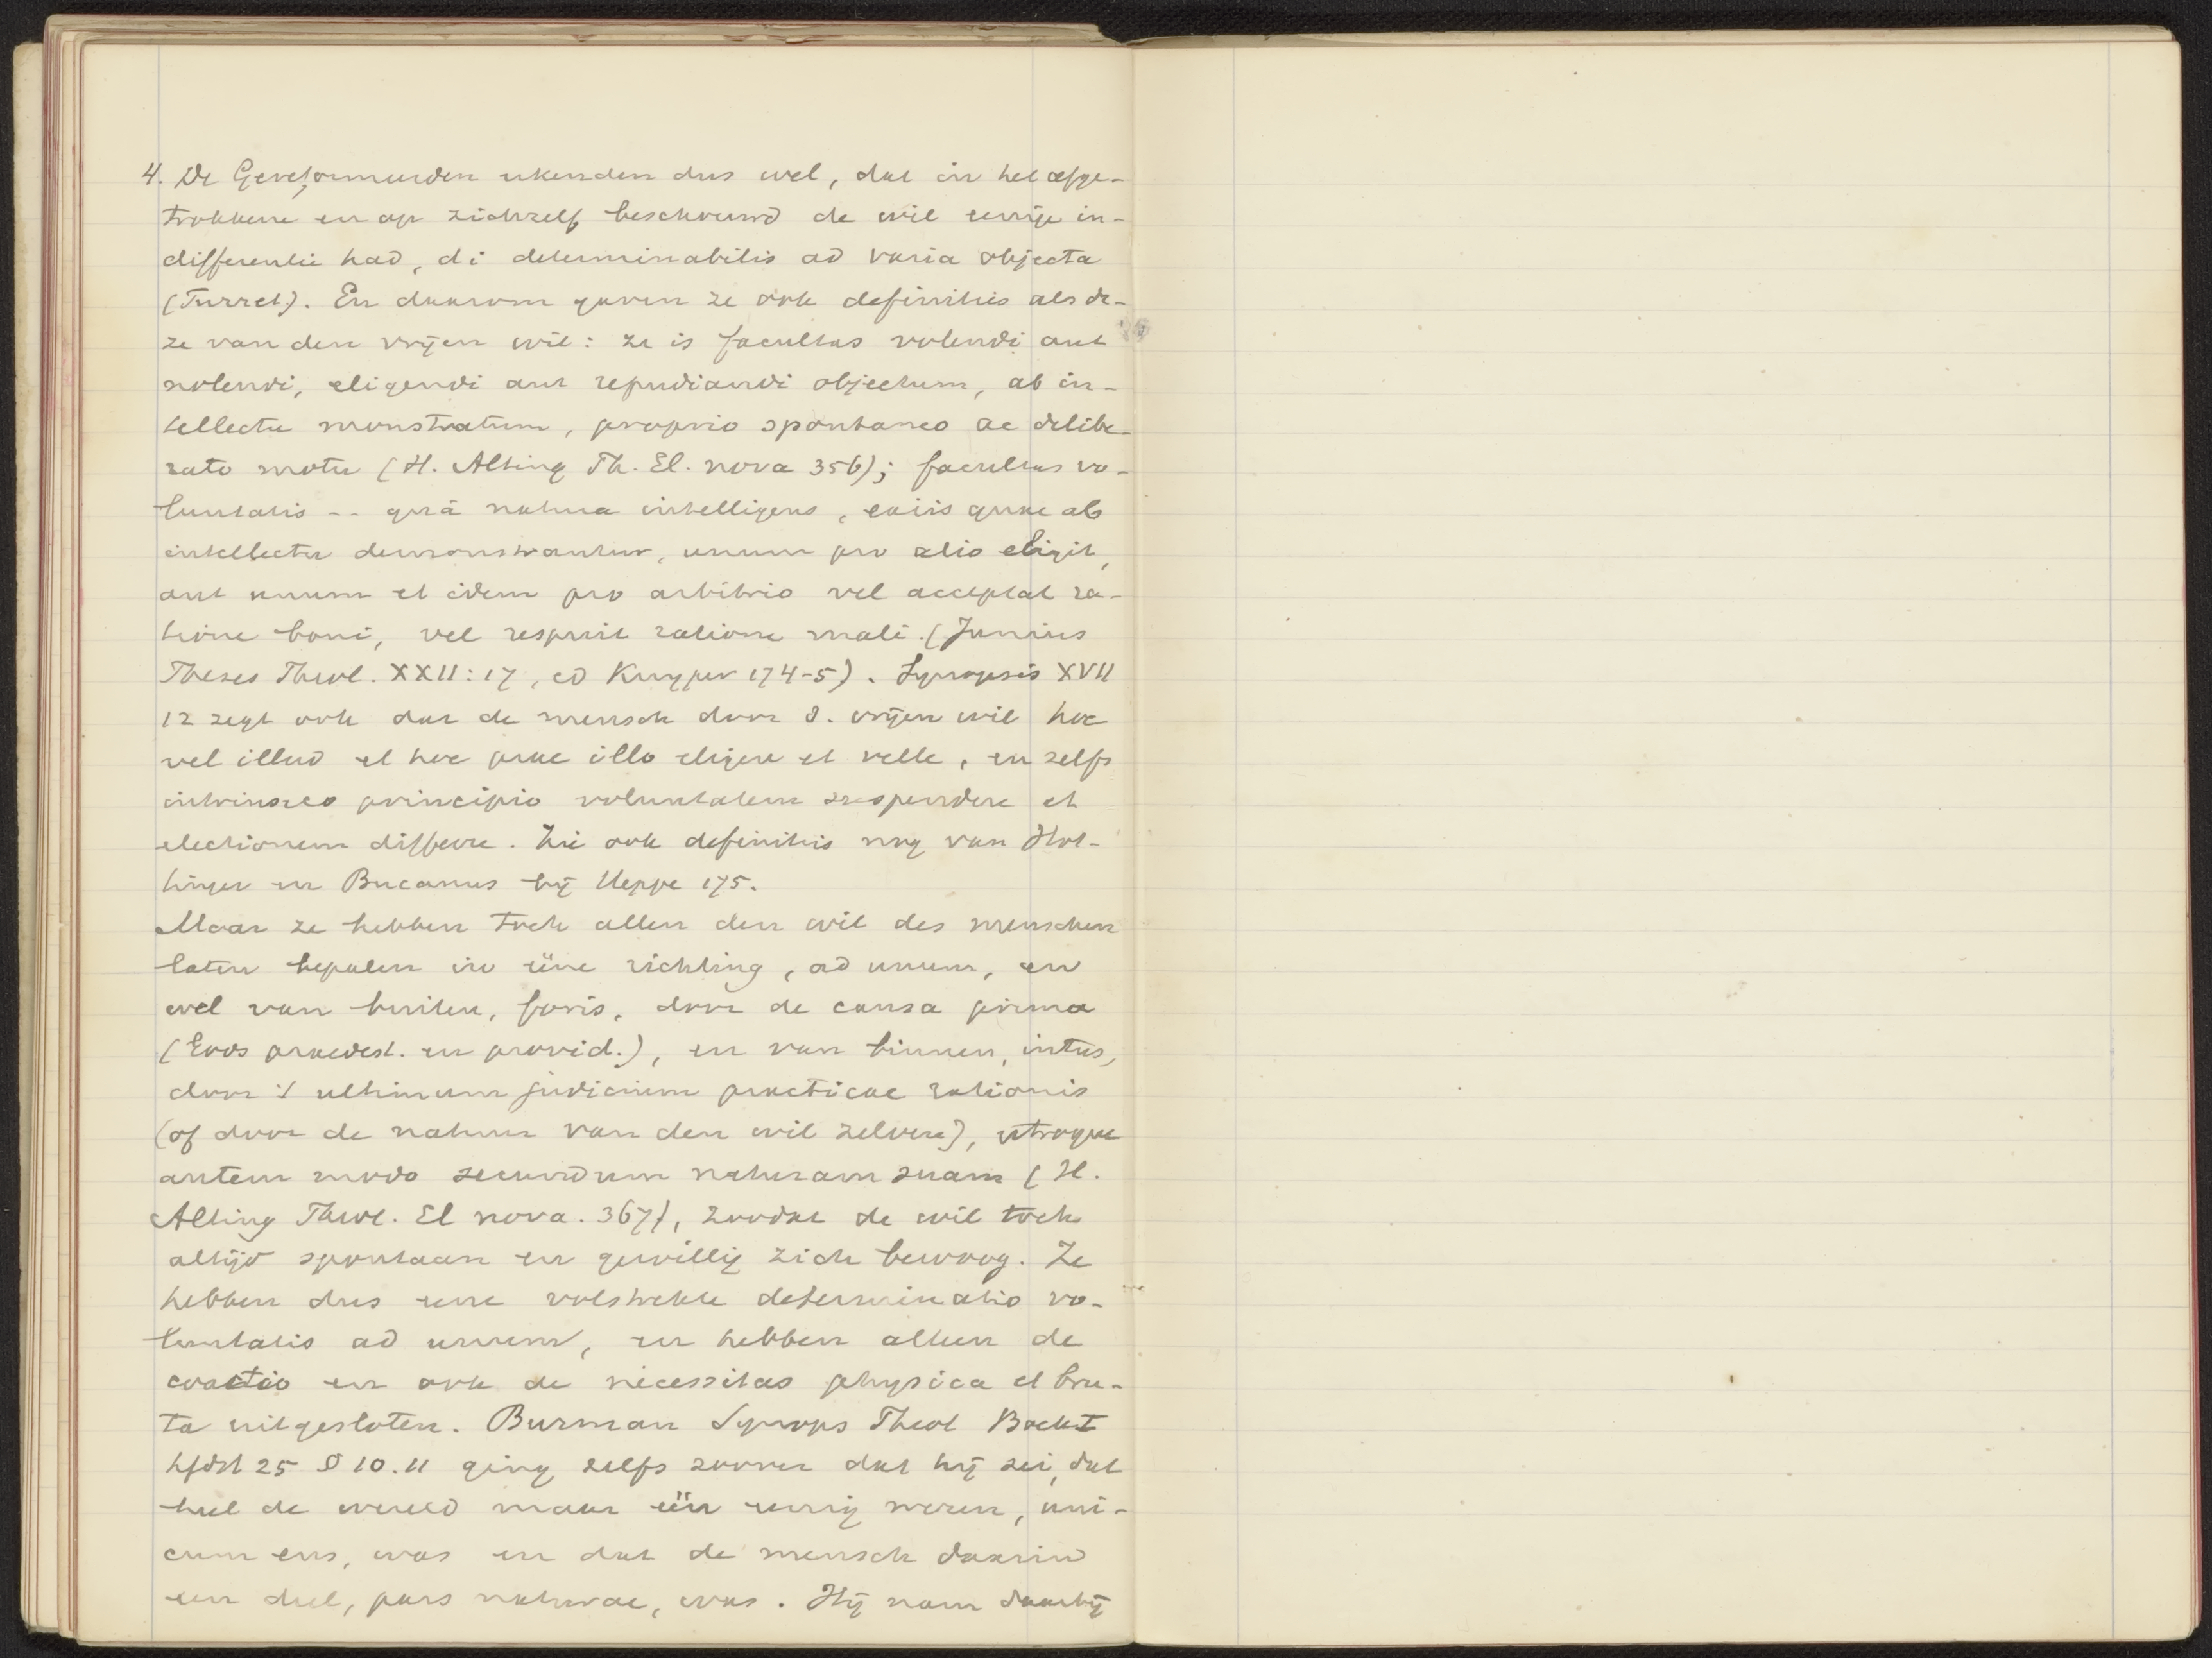 4. De Gereformeerden erkenden dus wel, dat in het afge-
trokkene en op zichzelf beschouwd de wil eenige in-
differentie had, di determinabilis ad varia objecta
(Turret.). En daarom gaven ze ook definities als de-
ze van den vrijen wil: ze is facultas volendi aut
nolendi, eligendi aut repudiandi objectum, ab in-
tellectu monstratum, proprio spontaneo ac delibe-
rato motu (H. Alting Th. El. nova 356); facultas vo-
luntatis -- quâ natura intelligens, ex iis quae ab
intellectu demonstrantur, unum pro alio eligit,
aut unum et idem pro arbitrio vel acceptat ra-
tione boni, vel respuit ratione mali. (Junius
Theses Theol. XXII:17, ed Kuyper 174-5). Synopsis XVII
12 zegt ook dat de mensch door d. vrijen wil hoc
vel illud et hoc prae illo eligere et velle, en zelfs
intrinseco principio voluntatem suspendere et
electionem differre. Zie ook definities nog van Hot-
tinger en Bucanus bij Heppe 175.
Maar ze hebben toch allen den wil des menschen
laten bepalen in ééne richting, ad unum, en
wel van buiten, foris, door de causa prima
(Gods praedest. en provid.), en van binnen, intus,
door 't ultimum judicium practicae rationis
(of door de natuur van den wil zelven), utroque
autem modo secundum naturam suam (H.
Alting Theol. El nova. 367), zoodat de wil toch
altijd spontaan en gewillig zich bewoog. Ze
hebben dus eene volstrekte determinatio vo-
luntatis ad unum, en hebben alleen de
coactio en ook de necessitas physica et bru-
ta uitgesloten. Burman Synops Theol Boek I
hfdst 25 § 10.11 ging zelfs zoover dat hij zei, dat
heel de wereld maar één eenig wezen, uni-
cum ens, was en dat de mensch daarin
een deel, pars naturae, was. Hij nam daarbij